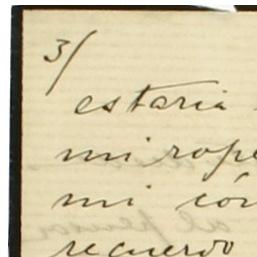 3/
estaria
mi rope
mi cón
recuerdo